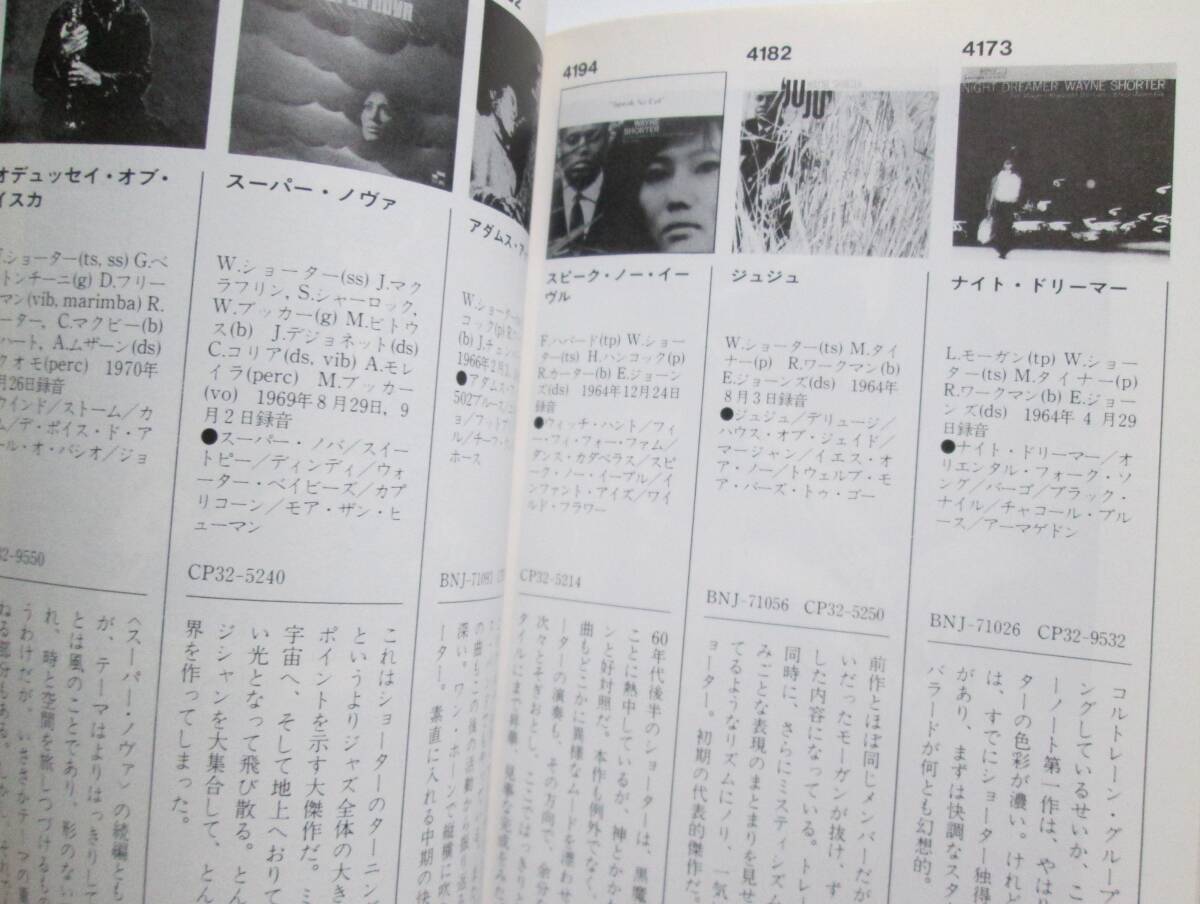 4173
NIGHT DREAMER WAYNE SHORTER
ナイト・ドリーマー
L.モーガン(tp) W.ショー
ター(ts) M.タイナー(p)
R.ワークマン(b) E.ジョー
ンズ(ds) 1964年 4 月29
日録音
●ナイト・ドリーマー/オ
リエンタル・フォーク・ソ
ング/バーゴ/ブラック・
ナイル/チャコール・ブル
ース/アーマゲドン
BNJ-71026 CP32-9532
コルトレーン・グループ
ングしているせいか、こ
ーノート第一作は、やは
ターの色彩が濃い。けれど
は、すでにショーター独得
があり、まずは快調なスタ
バラードが何とも幻想的。
4182
JUJU
ジュジュ
W.ショーター(ts) M.タイ
ナー(p) R.ワークマン(b)
E.ジョーンズ(ds) 1964年
8月3日録音
●ジュジュ/デリュージ/
ハウス・オブ・ジェイド/
マージャン/イエス・オ
ア・ノー/トウェルブ・モ
ア・バーズ・トゥ・ゴー
BNJ-71056 CP32-5250
前作とほぼ同じメンバーだが
いだったモーガンが抜け、ず
した内容になっている。トレー
同時に、さらにミスティシズム
みごとな表現のまとまりを見せ
てるようなリズムにノリ、一気
ョーター。初期の代表的傑作だ。
4194
"Speak No Evil"
WAYNE
SHORTER
スピーク・ノー・イー
ヴル
F.ハバード(tp) W.ショー
ター(ts) H.ハンコック(p)
R.カーター(b) E.ジョーン
ズ(ds) 1964年12月24日
録音
●ウィッチ・ハント/フィ
ー・フィ・フォー・ファム/
ダンス・カダベラス/スピ
ーク・ノー・イーブル/イ
ンファント・アイズ/ワイ
ルド・フラワー
CP32-5214
60年代後半のショーターは、黒魔
ことに熱中しているが、神とかか
ンと好対照だ。本作も例外でなく、
曲もどこかに異様なムードを漂わせ
ーターの演奏も、その方向で、余分な
次々とそぎおとし、ここではっきりと
アダムス・ア
W.ショーター
コック(p)
(b) J.チェン
1966年2月
●アダムス・ア
502ブルース
ョ/フットプ
ル/チーフ・
ホース
BNJ-71093
深い。ワン・ホーンで縦横に吹
ーター。素直に入れる中期の快
スーパー・ノヴァ
W.ショーター(ss) J.マク
ラフリン, S.シャーロック,
W.ブッカー(g) M.ビトウ
ス(b) J.デジョネット(ds)
C.コリア(ds, vib) A.モレ
イラ(perc) M.ブッカー
(vo) 1969年8月29日, 9
月2日録音
●スーパー・ノバ/スイー
トピー/ディンディ/ウォ
ーター・ベイビーズ/カプ
リコーン/モア・ザン・ヒ
ューマン
CP32-5240
これはショーターのターニン
というよりジャズ全体の大き
ポイントを示す大傑作だ。ミ
宇宙へ、そして地上へおりて
い光となって飛び散る。とん
ジシャンを大集合して、とん
界を作ってしまった。
オデュッセイ・オブ・
イスカ
.ショーター(ts, ss) G.ベ
トンチーニ(g) D.フリー
マン(vib, marimba) R.
ーター, C.マクビー(b)
ハート, A.ムザーン(ds)
クオモ(perc) 1970年
月26日録音
ウインド/ストーム/カ
ム/デ・ボイス・ド・ア
ール・オ・バシオ/ジョ
32-9550
〈スーパー・ノヴァ〉の続編とも
が、テーマはよりはっきりして
とは風のことであり、形のない
れ、時と空間を旅しつづけるもの
うわけだが、いささかテーマの重